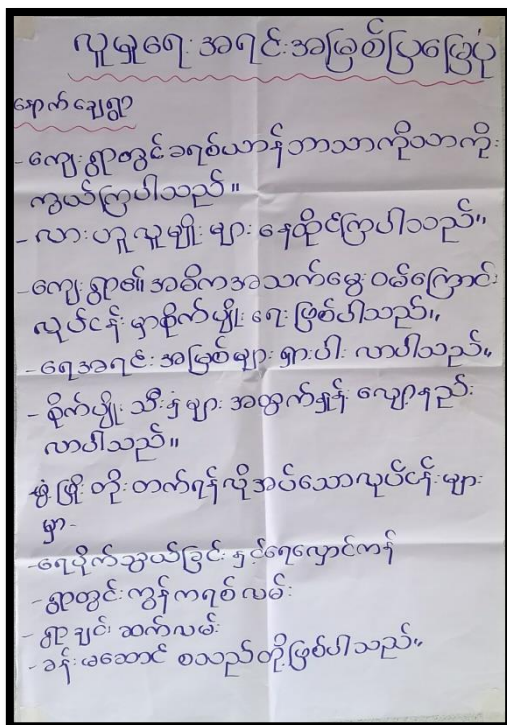 လူမှုရေး အရင်းအမြစ်ပြမြေပုံ
နောက်ချေရွာ
- ကျေးရွာတွင်ခရစ်ယာန်ဘာသာကိုသာကိုး
ကွယ်ကြပါသည်။
- လားဟူလူမျိုးများ နေထိုင်ကြပါသည်။
- ကျေးရွာ၏ အဓိကအသက်မွေးဝမ်းကြောင်း
လုပ်ငန်းမှာစိုက်ပျိုးရေးဖြစ်ပါသည်။
- ရေအရင်းအမြစ်များ ရှားပါးလာပါသည်။
- စိုက်ပျိုးသီးနှံများ အထွက်နှုန်းလျော့နည်း
လာပါသည်။
ဖွံ့ဖြိုးတိုးတက်ရန်လိုအပ်သောလုပ်ငန်းများ
မှာ-
- ရေပိုက်သွယ်ခြင်း နှင့်ရေလှောင်ကန်
- ရွာတွင်းကွန်ကရစ်လမ်း
- ရွာချင်းဆက်လမ်း
- ခန်းမဆောင် စသည်တို့ဖြစ်ပါသည်။